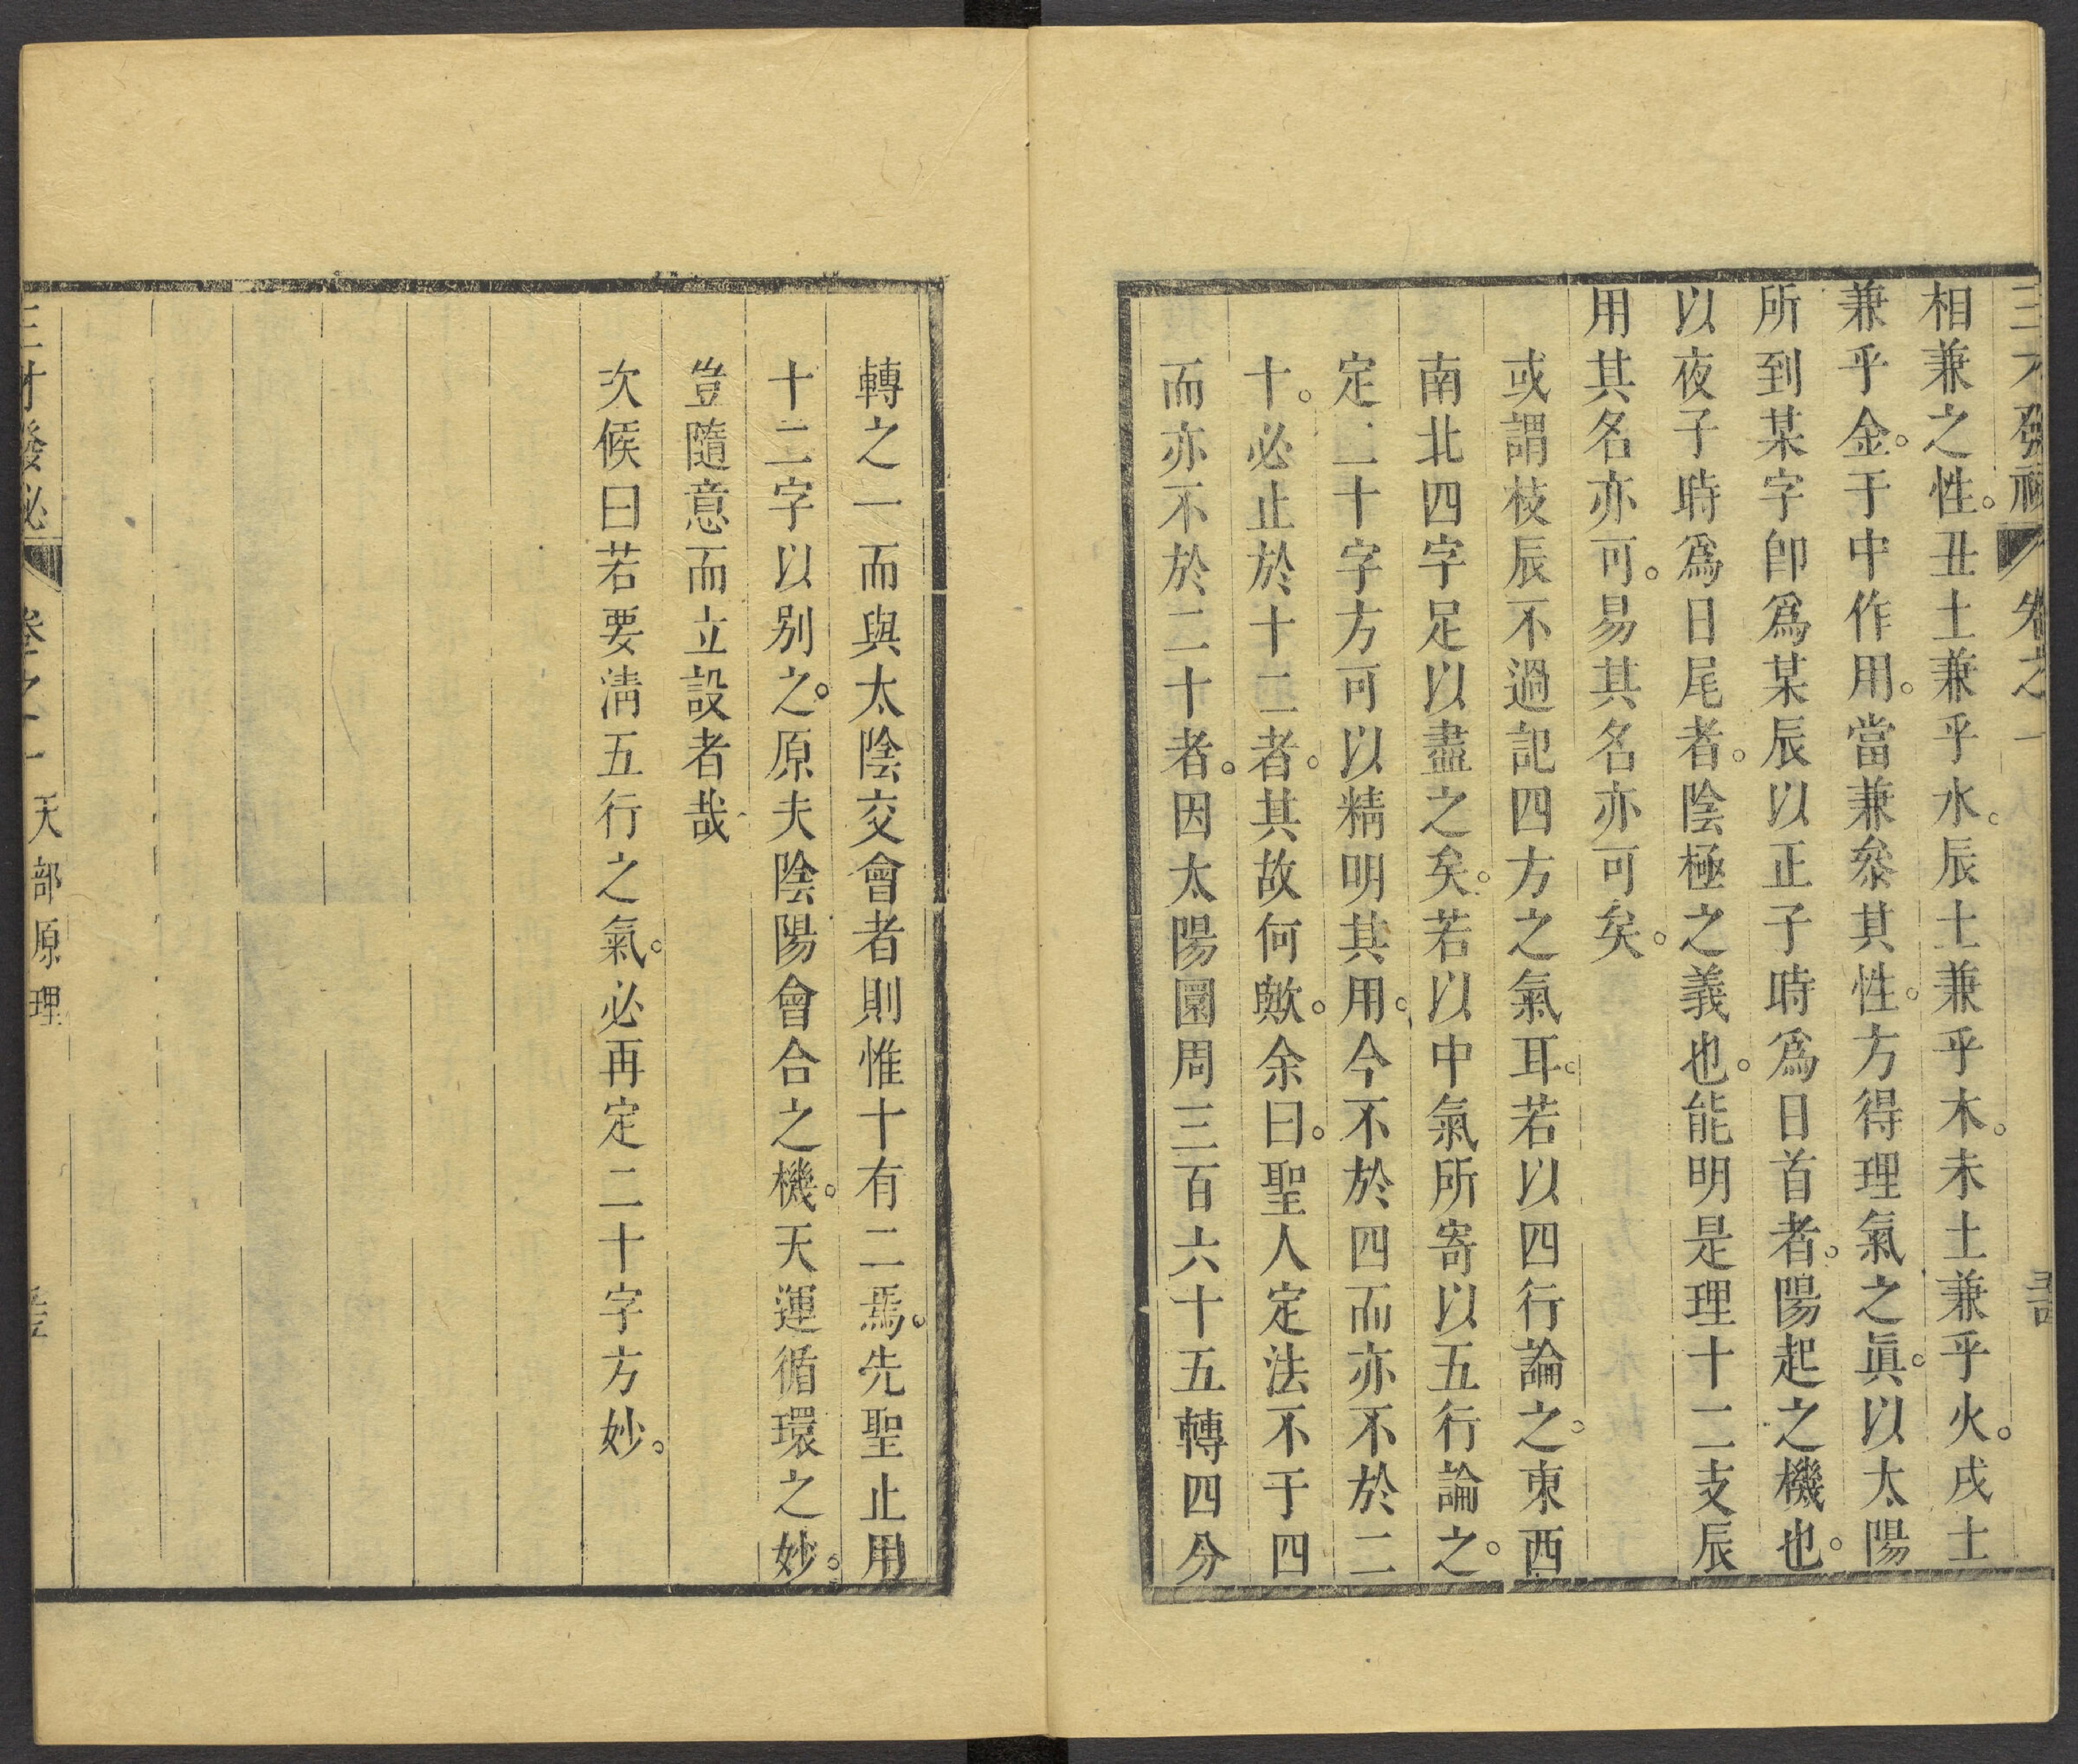 三才發秘 卷之一
相兼之性。丑土兼乎水。辰土兼乎木。未土兼乎火。戌土
兼乎金。于中作用。當兼叅其性。方得理氣之眞。以太陽
所到某字卽爲某辰以正子時爲日首者。陽起之機也。
以夜子時爲日尾者。陰極之義也。能明是理十二支辰
用其名亦可。易其名亦可矣。
或謂枝辰不過記四方之氣耳。若以四行論之。東西
南北四字足以盡之矣。若以中氣所寄以五行論之。
定二十字方可以精明其用。今不於四而亦不於二
十。必止於十二者。其故何歟。余曰。聖人定法不于四
而亦不於二十者。因太陽圜周三百六十五轉四分
轉之一而與太陰交會者則惟十有二焉。先聖止用
十二字以别之。原夫陰陽會合之機。天運循環之妙。
豈隨意而立設者哉
次候曰若要淸五行之氣。必再定二十字方妙。
三才發秘 卷之一 天部原理